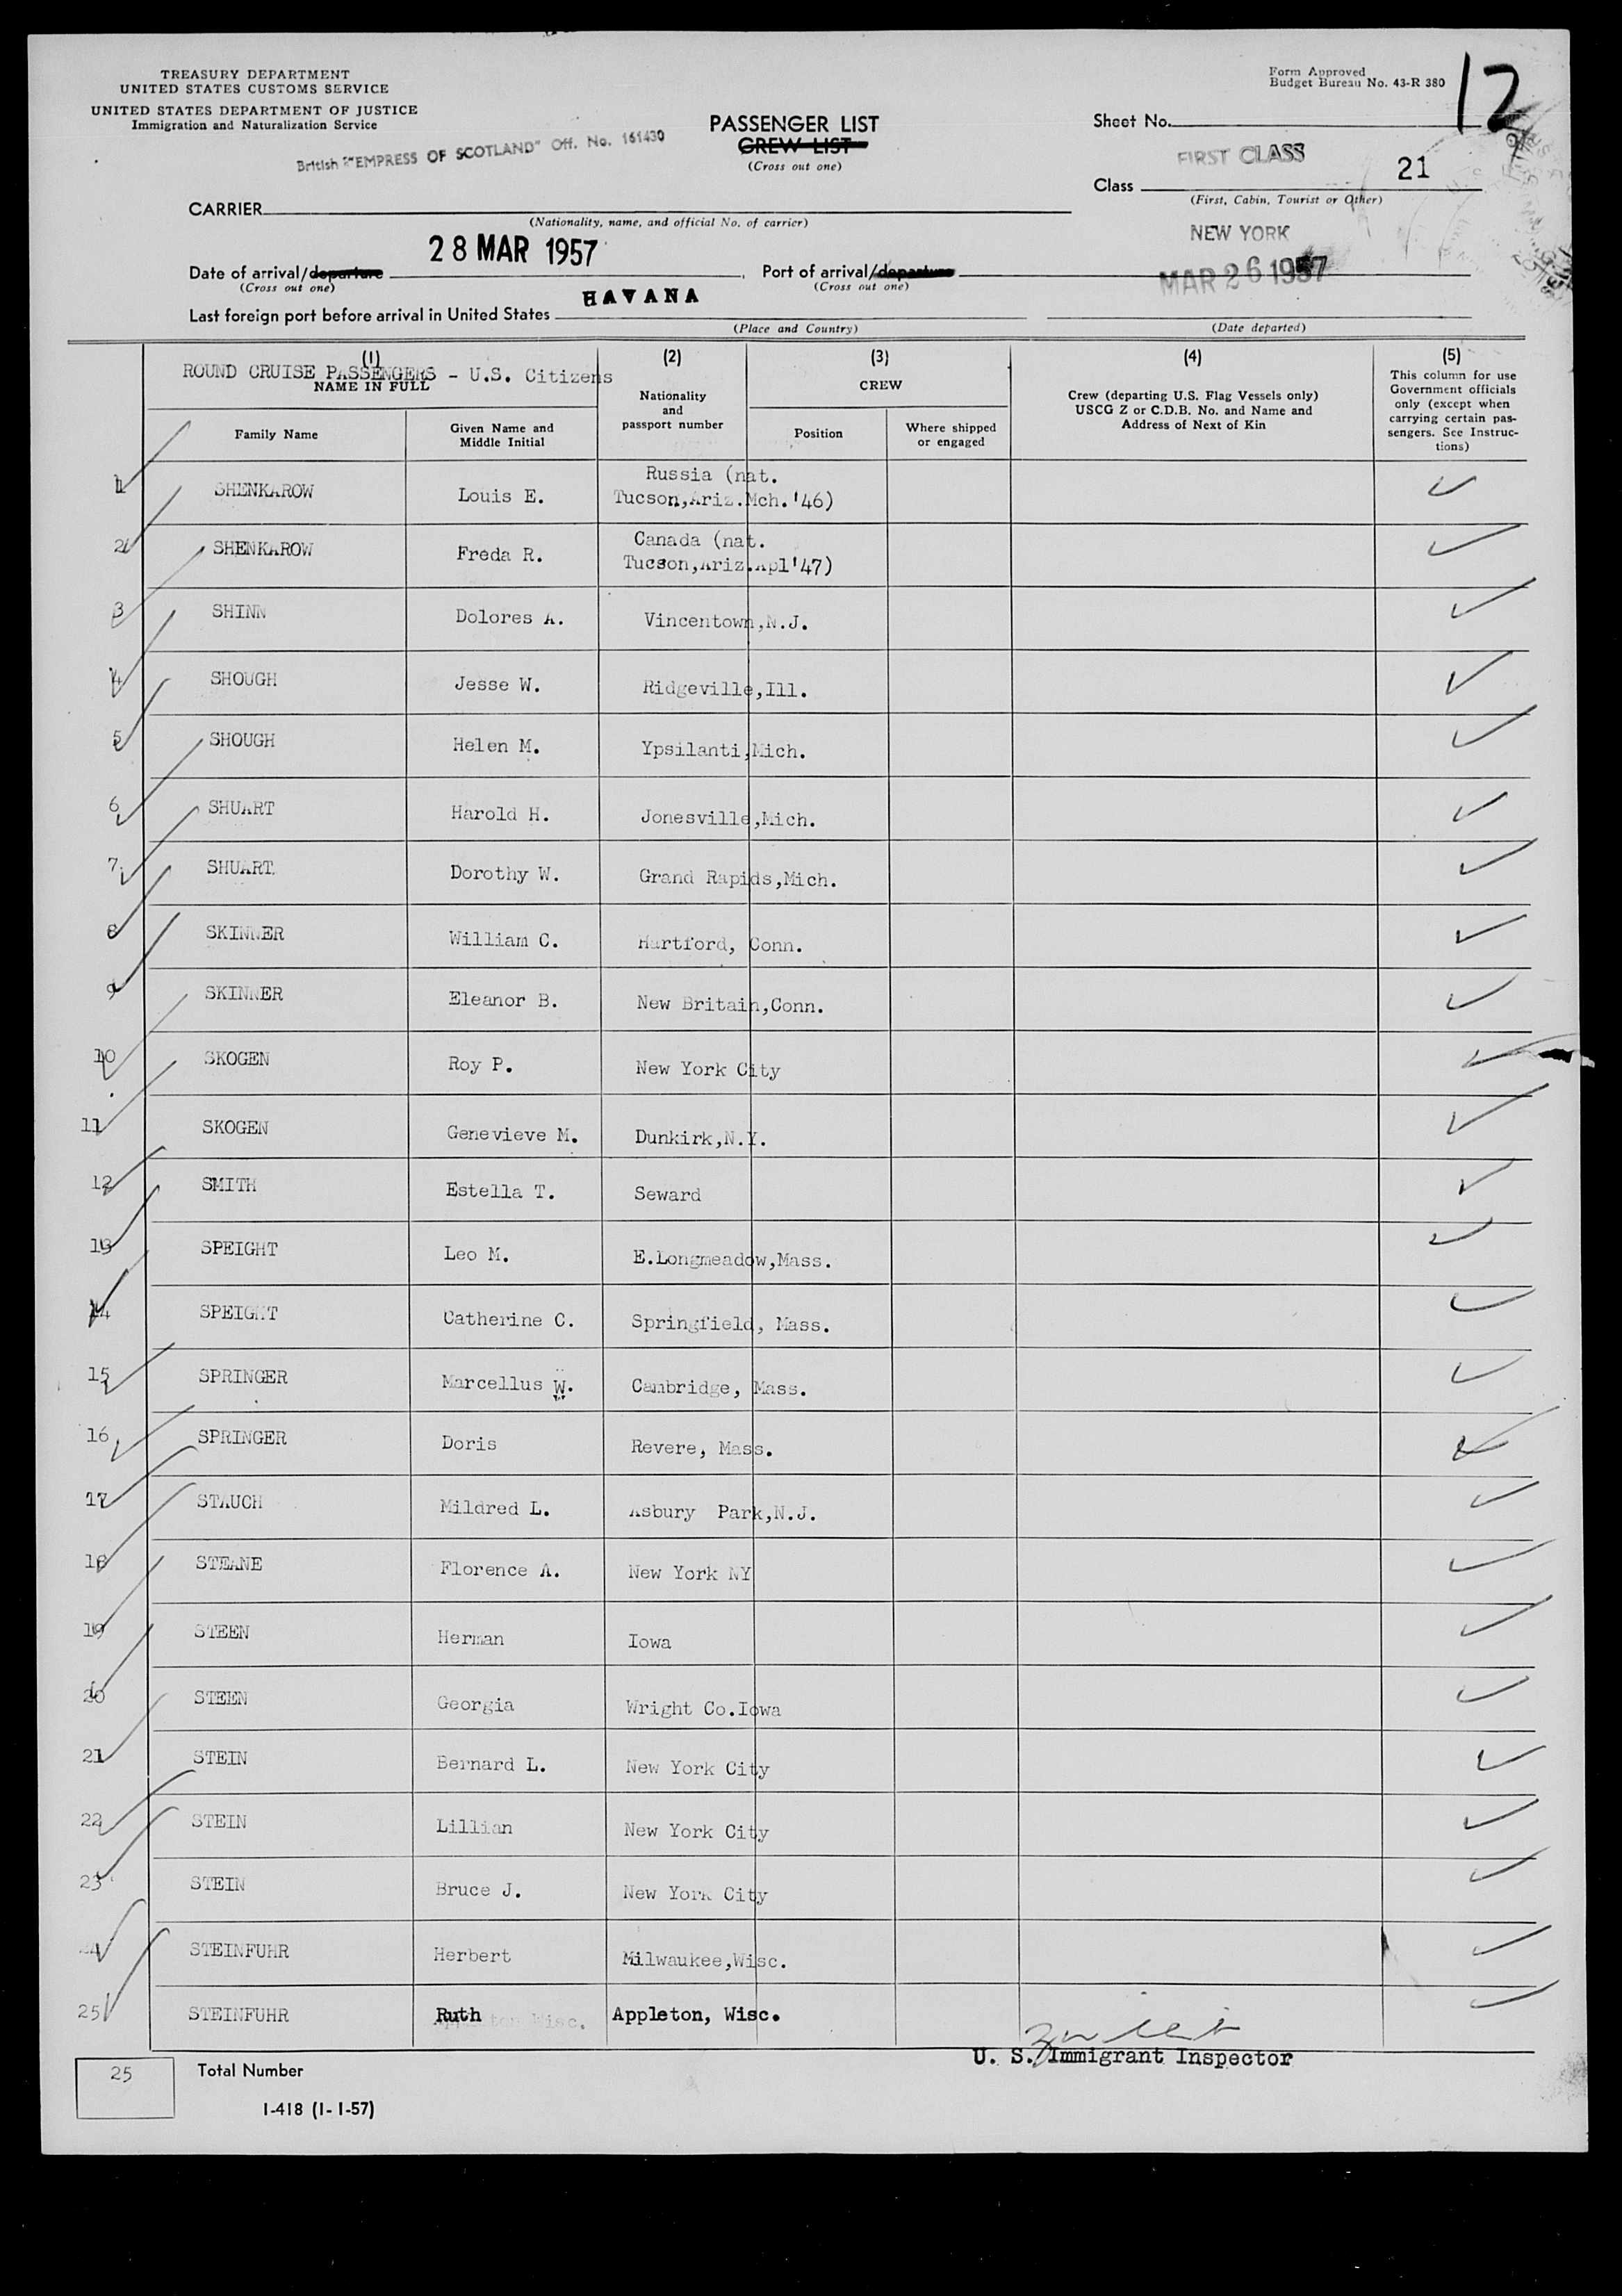 TREASURY DEPARTMENT
UNITED STATES CUSTOMS SERVICE
UNITED STATES DEPARTMENT OF JUSTICE
Immigration and Naturalization Service
Form Approved
Budget Bureau No. 43-R 380
12
PASSENGER LIST
CREW LIST
(Cross out one)
Sheet No.
British "EMPRESS OF SCOTLAND" Off. No. 161430
FIRST CLASS
21
Class
(First, Cabin, Tourist or Other)
CARRIER
(Nationality, name, and official No. of carrier)
NEW YORK
28 MAR 1957
Date of arrival/departure
(Cross out one)
Port of arrival/departure
(Cross out one)
MAR 26 1957
HAVANA
Last foreign port before arrival in United States
(Place and Country)
(Date departed)
(1) (2) (3) (4) (5)
ROUND CRUISE PASSENGERS - U.S. Citizens
NAME IN FULL
Family Name
Given Name and
Middle Initial
Nationality
and
passport number
CREW
Position
Where shipped
or engaged
Crew (departing U.S. Flag Vessels only)
USCG Z or C.D.B. No. and Name and
Address of Next of Kin
This column for use
Government officials
only (except when
carrying certain pas-
sengers. See Instruc-
tions)
1 SHENKAROW Louis E. Russia (nat.
Tucson,Ariz.Mch.'46)
2 SHENKAROW Freda R. Canada (nat.
Tucson,Ariz.Apl'47)
3 SHINN Dolores A. Vincentown,N.J.
4 SHOUGH Jesse W. Ridgeville,Ill.
5 SHOUGH Helen M. Ypsilanti,Mich.
6 SHUART Harold H. Jonesville,Mich.
7 SHUART Dorothy W. Grand Rapids,Mich.
8 SKINNER William C. Hartford, Conn.
9 SKINNER Eleanor B. New Britain,Conn.
10 SKOGEN Roy P. New York City
11 SKOGEN Genevieve M. Dunkirk,N.Y.
12 SMITH Estella T. Seward
13 SPEIGHT Leo M. E.Longmeadow,Mass.
14 SPEIGHT Catherine C. Springfield, Mass.
15 SPRINGER Marcellus W. Cambridge, Mass.
16 SPRINGER Doris Revere, Mass.
17 STAUCH Mildred L. Asbury Park,N.J.
18 STEANE Florence A. New York NY
19 STEEN Herman Iowa
20 STEEN Georgia Wright Co.Iowa
21 STEIN Bernard L. New York City
22 STEIN Lillian New York City
23 STEIN Bruce J. New York City
24 STEINFUHR Herbert Milwaukee,Wisc.
25 STEINFUHR Ruth Appleton, Wisc.
U. S. Immigrant Inspector
25
Total Number
I-418 (1-1-57)